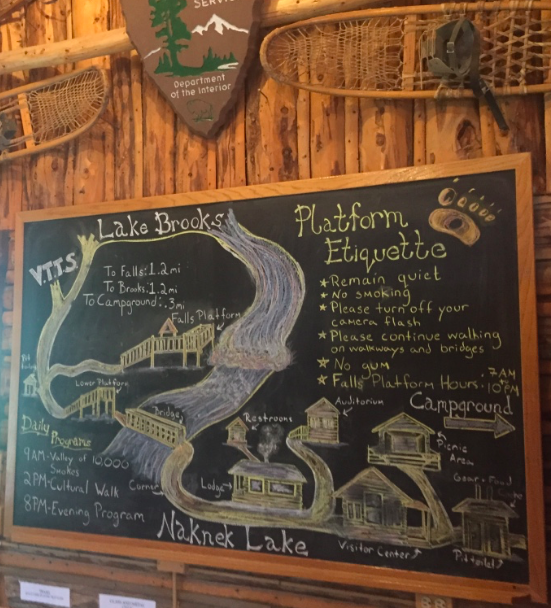 SERVICE
Department
of the Interior
Lake Brooks
V.T.T.S.
To Falls: 1.2 mi
To Brooks: 1.2 mi
To Campground: .3 mi
Falls Platform
Lower Platform
Bridge
Corner
Platform
Etiquette
★ Remain quiet
★ No smoking
★ Please turn off your
camera flash
★ Please continue walking
on walkways and bridges
★ No gum
★ Falls Platform Hours: 7AM
- 10PM
Campground
Auditorium
Restrooms
Lodge
Picnic
Area
Gear + Food
Visitor Center
Pit toilet
Daily
Programs
9AM-Valley of 10,000
Smokes
2PM-Cultural Walk
8PM-Evening Program
Naknek Lake